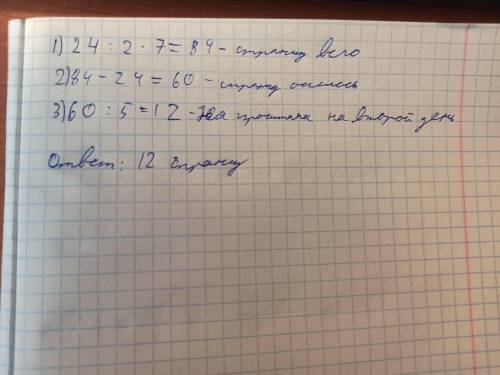 1) 24 : 2 · 7 = 84 - страниц всего
2) 84 - 24 = 60 - страниц осталось
3) 60 : 5 = 12 - прочитала на второй день
Ответ: 12 страниц